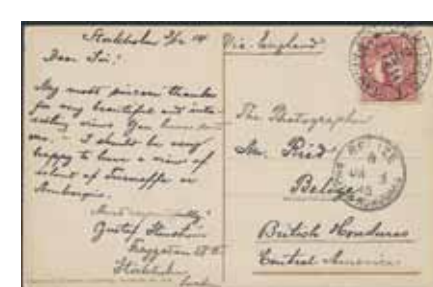 Stockholm 3/12 14
Dear Sir!
My most sincere thanks
for very beautiful and inte-
resting views You have sent
me. I should be very
happy to have a view of
island of Turneffe or
Ambergris.
Most respectfully!
Gustaf
Stockholm
Via England
The Photographer
Mr. Reid
Belize
British Honduras
Central America
BELIZE
BRITISH HONDURAS